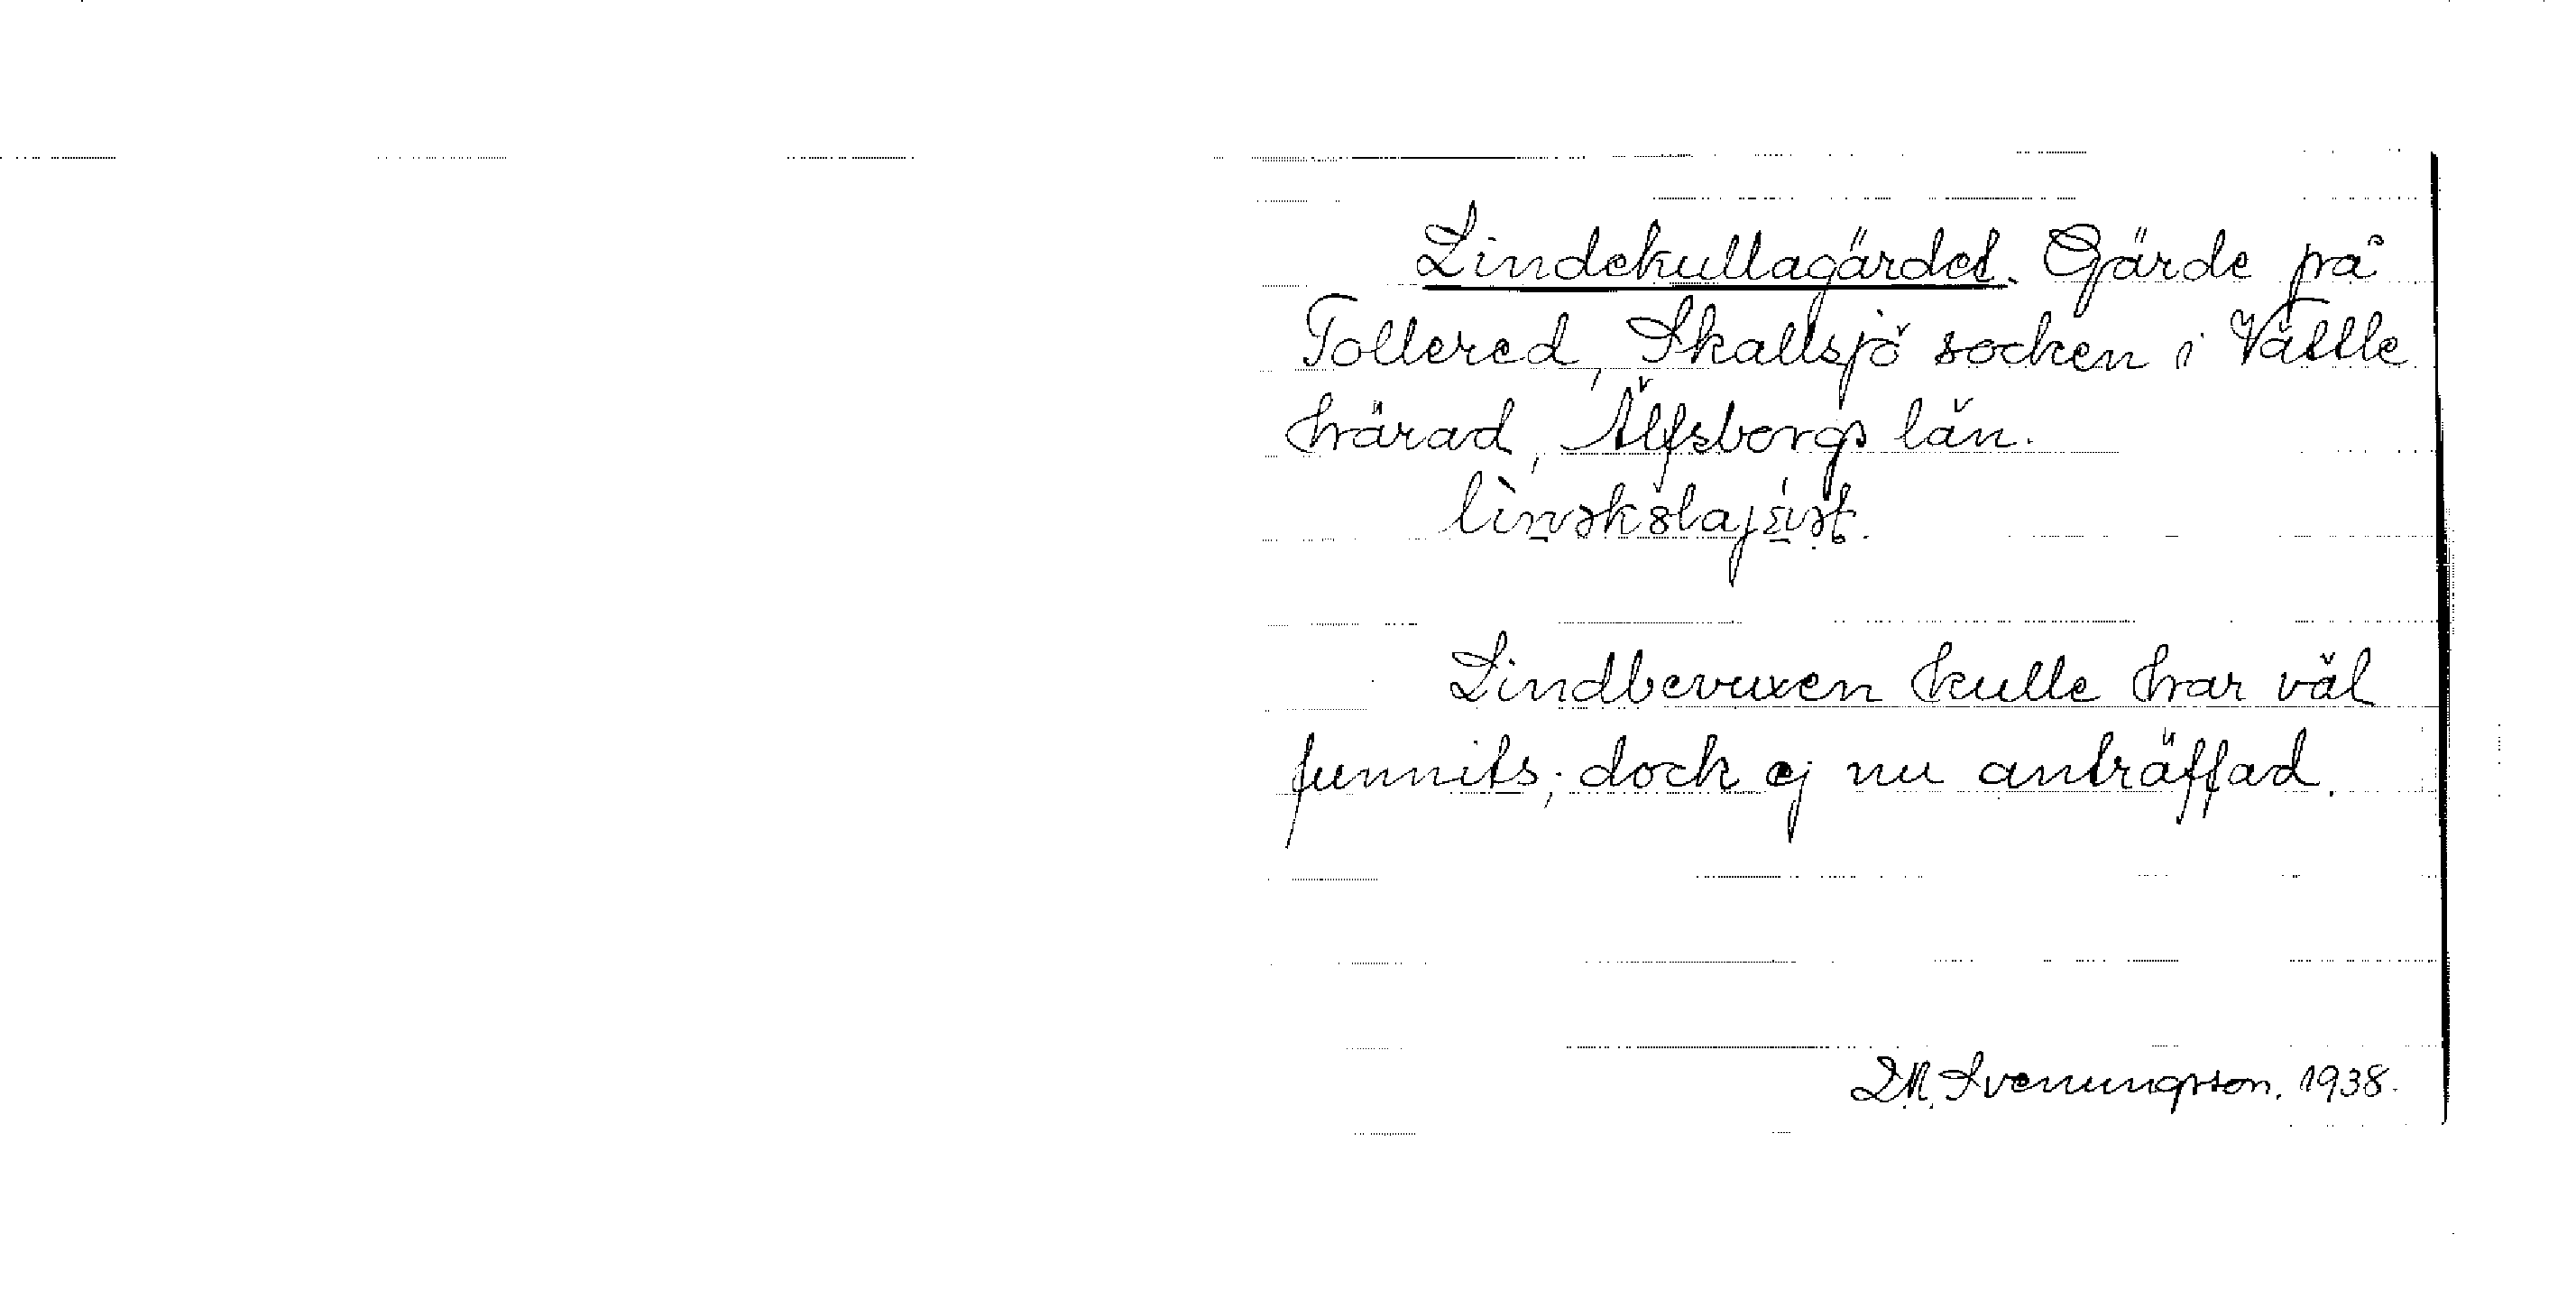 Lindekullagärdet. Gärde på
Tollered, Skallsjö socken i Vättle
härad, Älfsborgs län.
Lindbevuxen kulle har väl
funnits; dock ej nu anträffad.
D.N. Svenungsson. 1938.